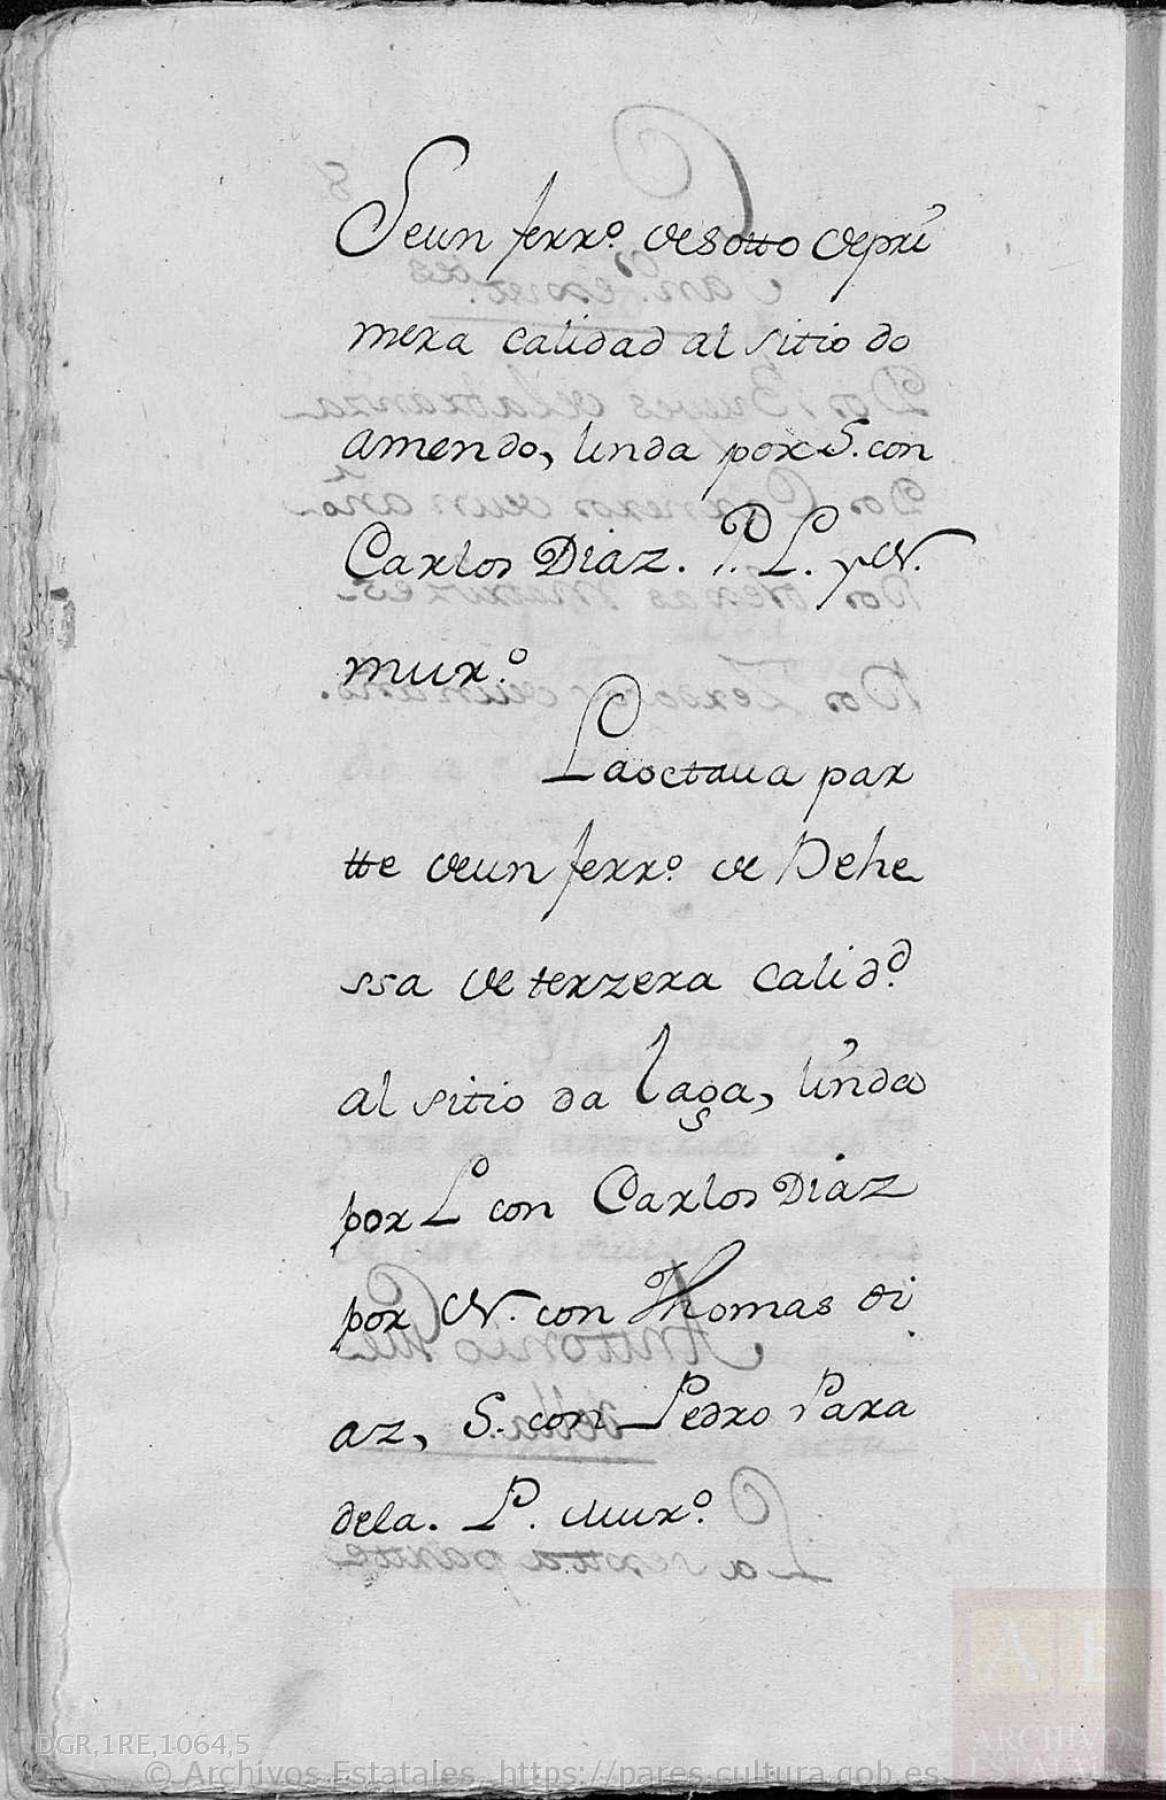 Deun ferrº. de sotto de pri
mera calidad al sitio do
amendo, linda por S. con
Carlos Diaz. P. L. y N.
murº.
La octaua par
tte de un ferrº. de Dehe
ssa de terzera calidd.
al sitio da laga, linda
por L con Carlos Diaz
por N. con Thomas di
az, S. con Pedro Para
dela. P. murº.
DGR,1RE,1064,5
© Archivos Estatales, https://pares.cultura.gob.es
AE
ARCHIVOS
ESTATALES